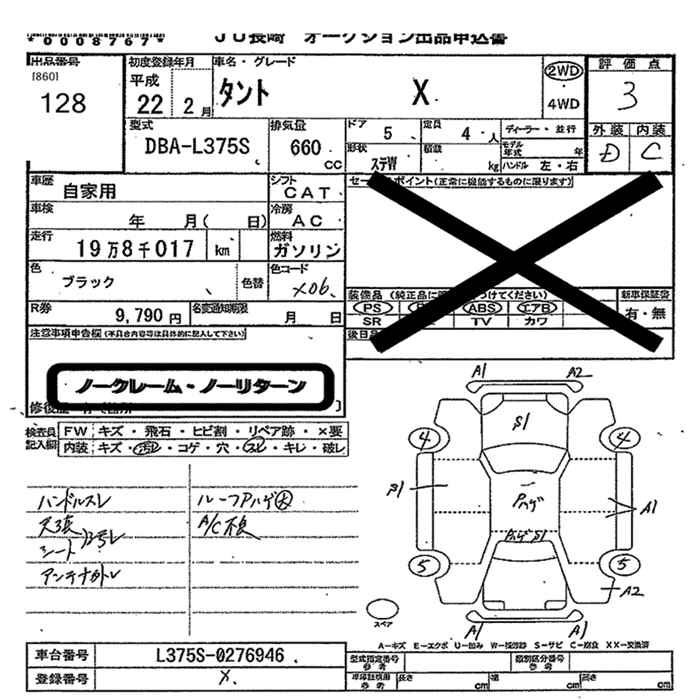 *0008767* JU長崎 オークション出品申込書
出品番号 初度登録年月 車名・グレード 評価点
[860] 128 平成 22 2月 タント X 2WD 4WD 3
型式 排気量 ドア 5 定員 4 人 ディーラー・並行 外装 内装
DBA-L375S 660 CC 形状 ステW 積載 kg モデル年式 年 ハンドル 左・右 D C
車歴 自家用 シフト CAT セールスポイント(正常に機能するものに限ります)
車検 年 月( 日) 冷房 AC
走行 19万8千017 km 燃料 ガソリン
色 ブラック 色替 色コード X06
装備品 新車保証書
R券 9,790円 名変通知期限 月 日 PS ABS エアB 有・無
SR TV カワ
注意事項申告欄(不具合内容等は具体的に記入して下さい) 後日品
ノークレーム・ノーリターン
修復歴
検査員記入欄 FW キズ・飛石・ヒビ割・リペア跡・×要
内装 キズ・汚レ・コゲ・穴・スレ・キレ・破レ
ハンドルスレ ルーフアハゲ大
天張 A/C不良
シート
アンテナカトレ
A1 A2
S1
4 4
A1
5 5
A2
A1 A1
スペア
A-キズ E-エクボ U-凹み W-補修跡 S-サビ C-腐食 XX-交換済
車台番号 L375S-0276946 型式指定番号 参考 類別区分番号 参考
登録番号 X 車庫証明用 参考 長さ cm 幅 cm 高さ cm